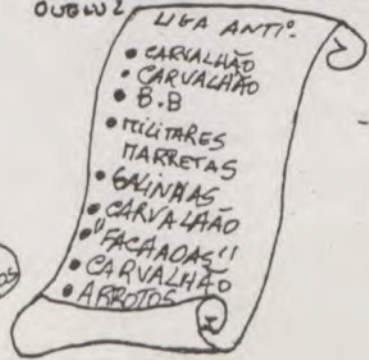 QUELUZ
LIGA ANTI:
• CARVALHÃO
• CARVALHÃO
• B.B
• MILITARES
MARRETAS
• GALINHAS
• CARVALHÃO
• "FACHADAS"
• CARVALHÃO
• ARROTOS
OS